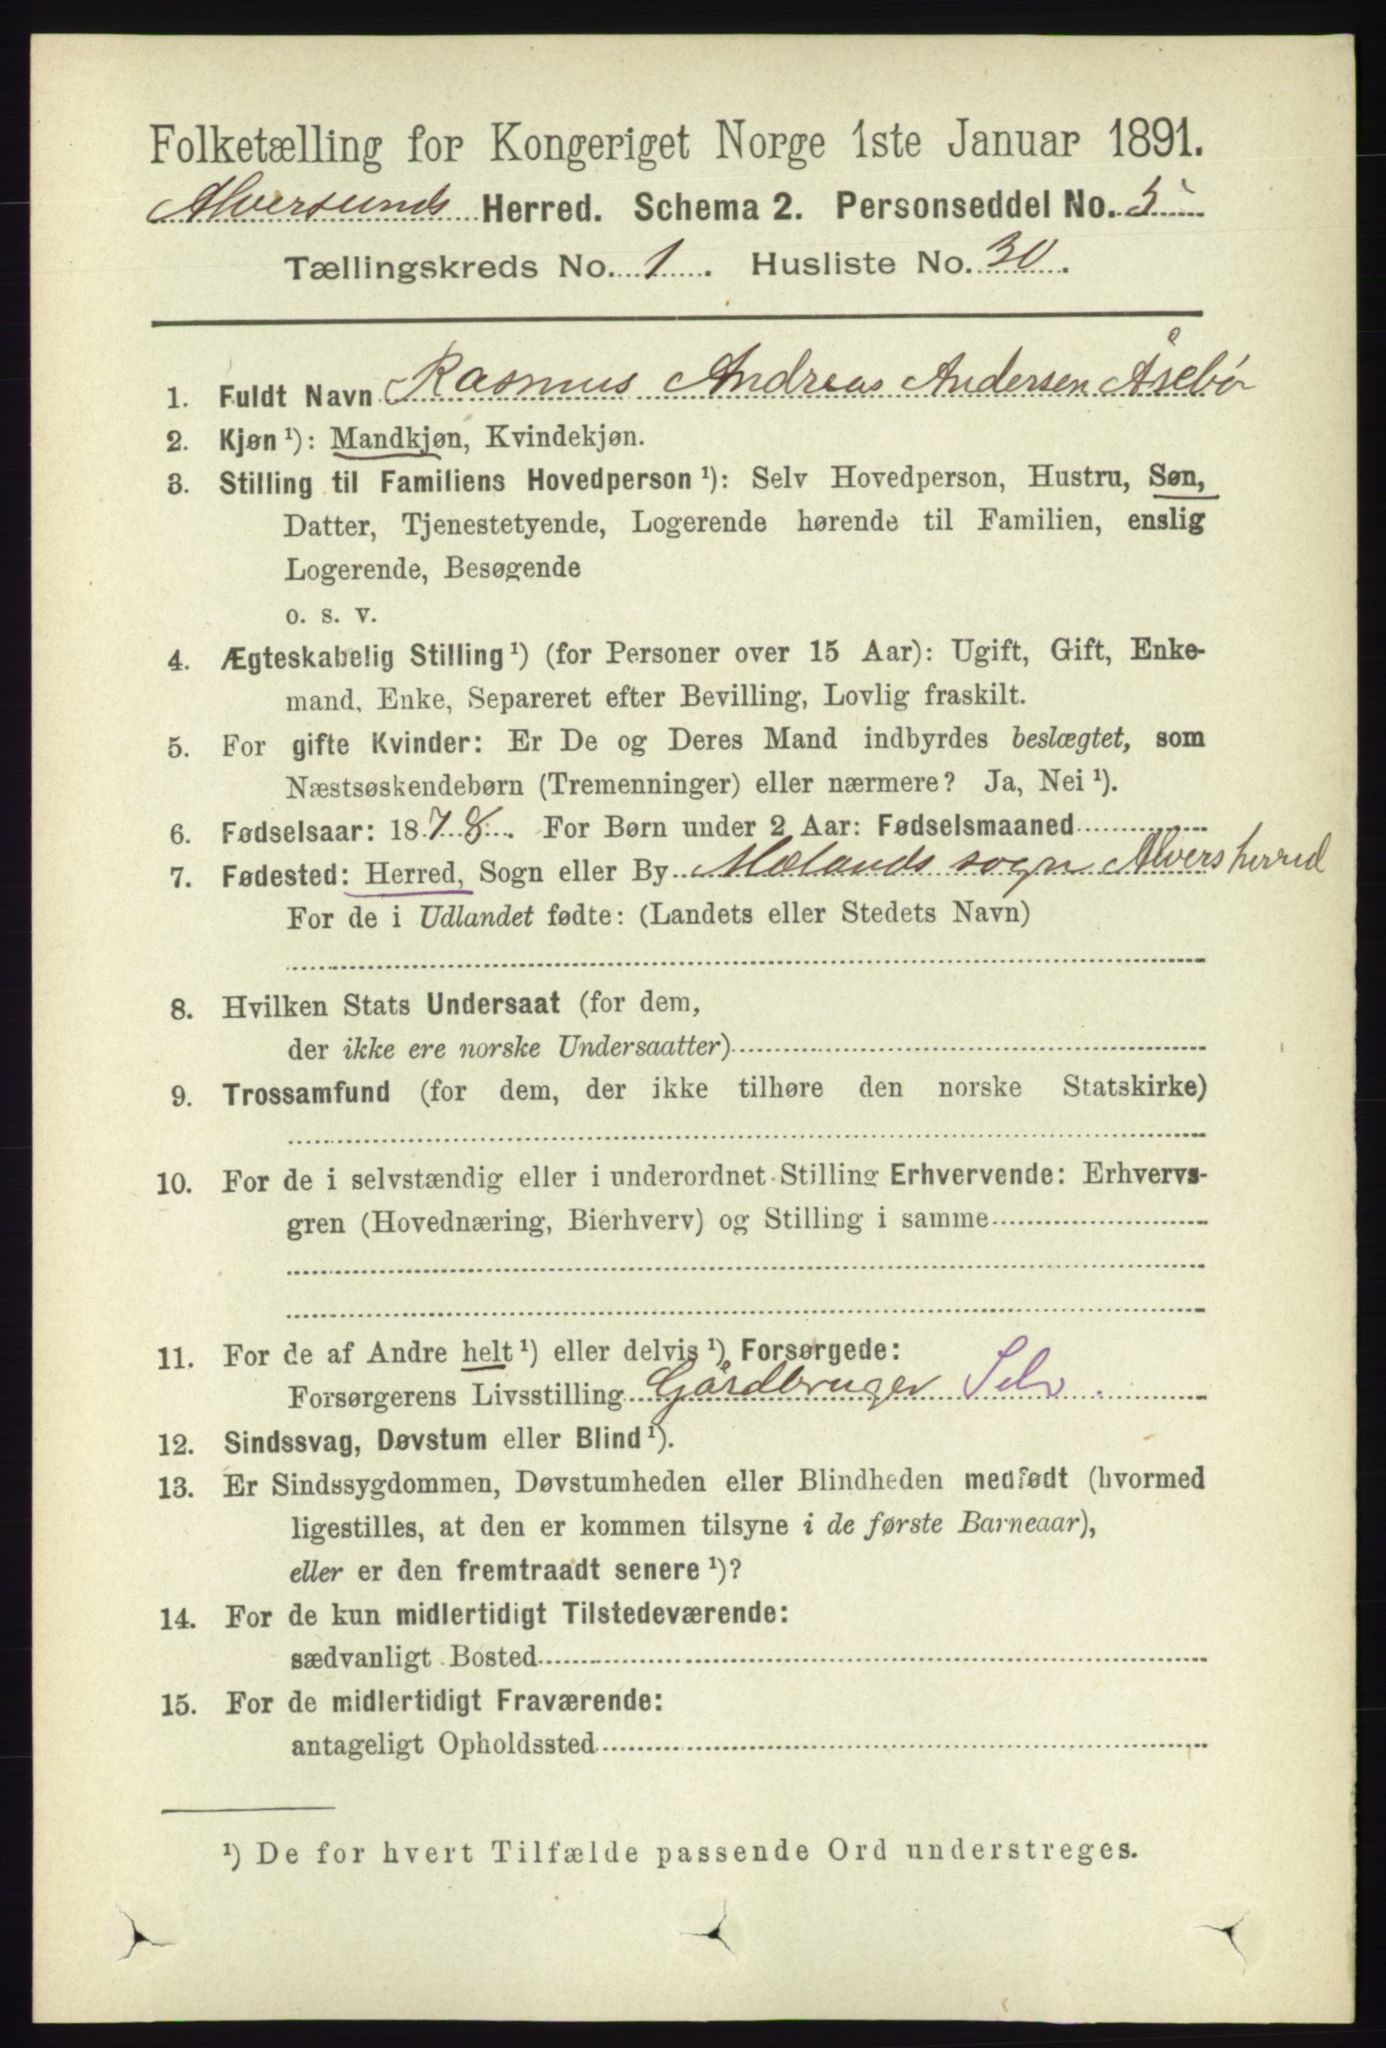 Folketælling for Kongeriget Norge 1ste Januar 1891.
Alversunds Herred. Schema 2. Personseddel No. 5
Tællingskreds No. 1. Husliste No. 30.
1. Fuldt Navn Rasmus Andreas Andersen Åsebø
2. Kjøn ¹): Mandkjøn, Kvindekjøn.
3. Stilling til Familiens Hovedperson ¹): Selv Hovedperson, Hustru, Søn,
Datter, Tjenestetyende, Logerende hørende til Familien, enslig
Logerende, Besøgende
o. s. v.
4. Ægteskabelig Stilling ¹) (for Personer over 15 Aar): Ugift, Gift, Enke-
mand, Enke, Separeret efter Bevilling, Lovlig fraskilt.
5. For gifte Kvinder: Er De og Deres Mand indbyrdes beslægtet, som
Næstsøskendebørn (Tremenninger) eller nærmere? Ja, Nei ¹).
6. Fødselsaar: 1878. For Børn under 2 Aar: Fødselsmaaned
7. Fødested: Herred, Sogn eller By Mælands sogn Alversherred
For de i Udlandet fødte: (Landets eller Stedets Navn)
8. Hvilken Stats Undersaat (for dem,
der ikke ere norske Undersaatter)
9. Trossamfund (for dem, der ikke tilhøre den norske Statskirke)
10. For de i selvstændig eller i underordnet Stilling Erhvervende: Erhvervs-
gren (Hovednæring, Bierhverv) og Stilling i samme
11. For de af Andre helt ¹) eller delvis ¹) Forsørgede:
Forsørgerens Livsstilling Gårdbruger Selv.
12. Sindssvag, Døvstum eller Blind ¹).
13. Er Sindssygdommen, Døvstumheden eller Blindheden medfødt (hvormed
ligestilles, at den er kommen tilsyne i de første Barneaar),
eller er den fremtraadt senere ¹)?
14. For de kun midlertidigt Tilstedeværende:
sædvanligt Bosted
15. For de midlertidigt Fraværende:
antageligt Opholdssted
¹) De for hvert Tilfælde passende Ord understreges.